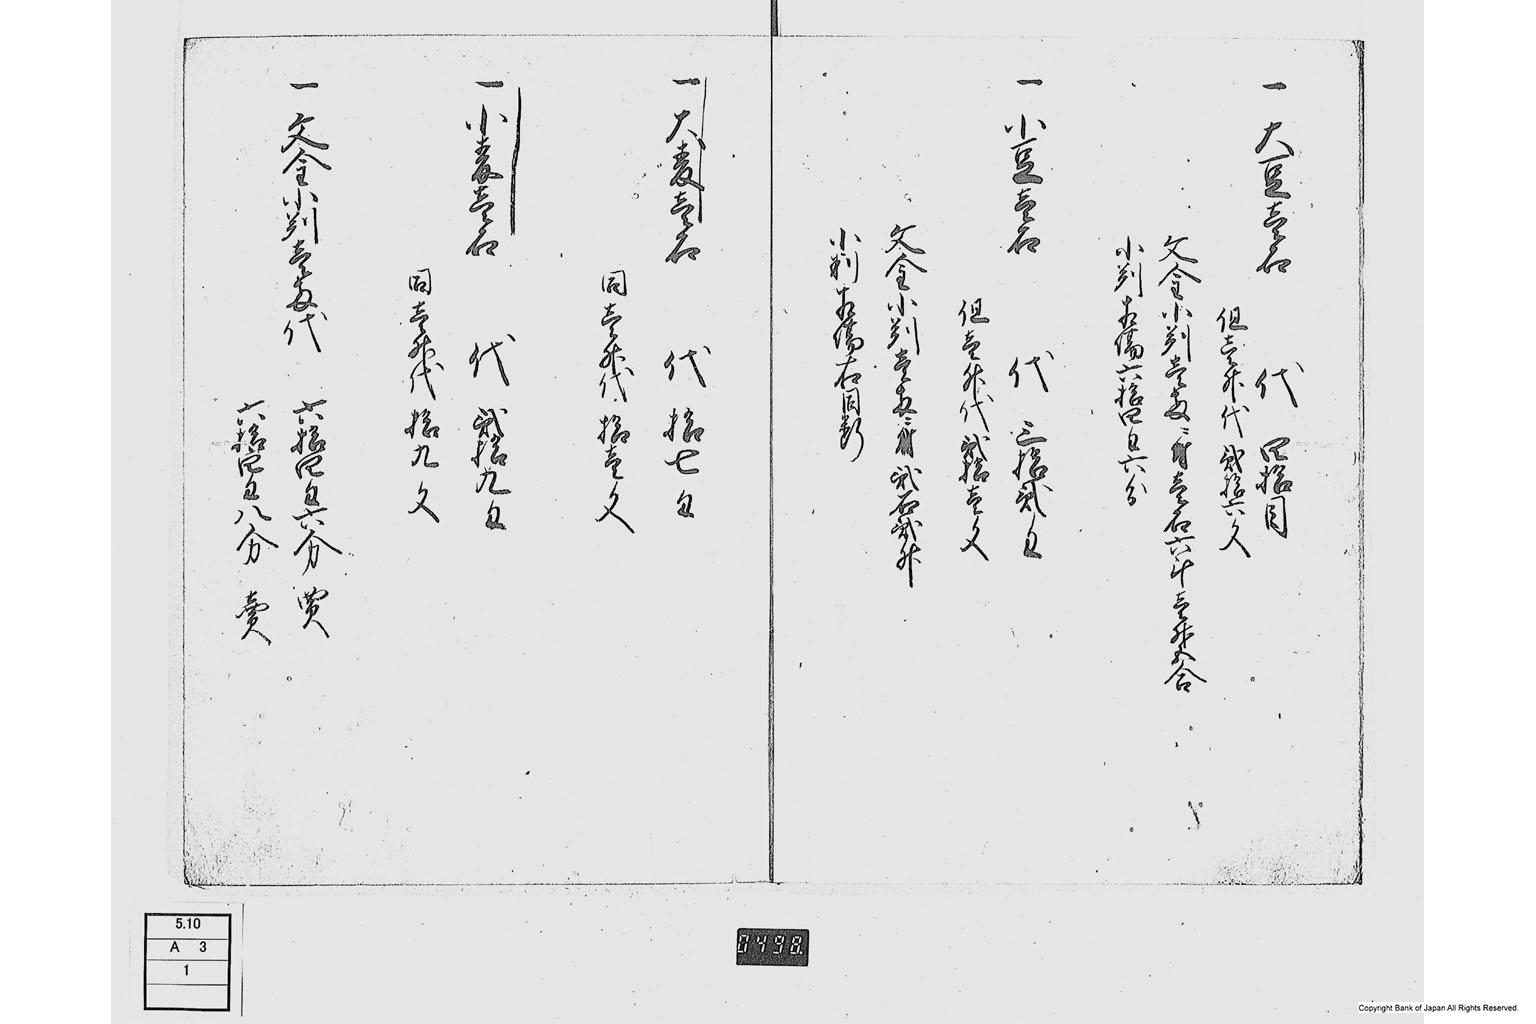 一 大豆壱石 代 四拾目
但壱升代 弐拾六文
文金小判壱両ニ付 壱石六斗壱升五合
小判相場六拾四匁六分
一 小豆壱石 代 三拾弐匁
但壱升代 弐拾壱文
文金小判壱両ニ付 弐石弐升
小判相場右同断
一 大麦壱石 代 拾七匁
同壱升代 拾壱文
一 小麦壱石 代 弐拾九匁
同壱升代 拾九文
一 文金小判壱両代 六拾四匁六分 買
六拾四匁八分 賣
5.10
A 3
1
0498
Copyright Bank of Japan All Rights Reserved.